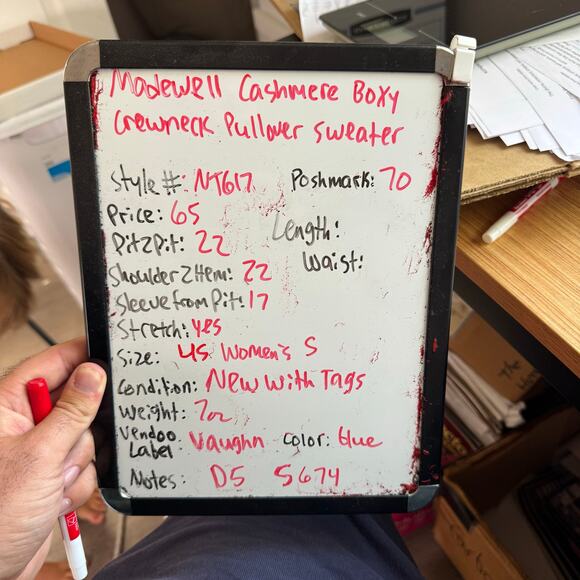 Madewell Cashmere Boxy
Crewneck Pullover Sweater
Style #: NT617 Poshmark: 70
Price: 65
Pit2Pit: 22 Length:
Shoulder2Hem: 22 Waist:
Sleeve from Pit: 17
Stretch: yes
Size: US Women's S
Condition: New With Tags
Weight: 7oz
Vendoo Label: Vaughn Color: blue
Notes: D5 S674